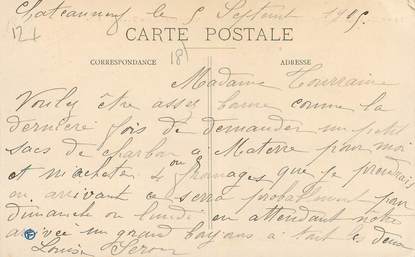 Chateauneuf le 5 Septembre 1905
12 f
CARTE POSTALE
18f
CORRESPONDANCE
ADRESSE
Madame Tourraine
Vouley être asses bonne comme la
dernière fois de demander un petit
sacs de charbon a Materre pour moi
et m'acheter 4 ou fromages que je prendrai
en arrivant ce sera probablement pour
dimanche ou lundi en attendant notre
arrivée un grand bonjours a tout les deux
Louise